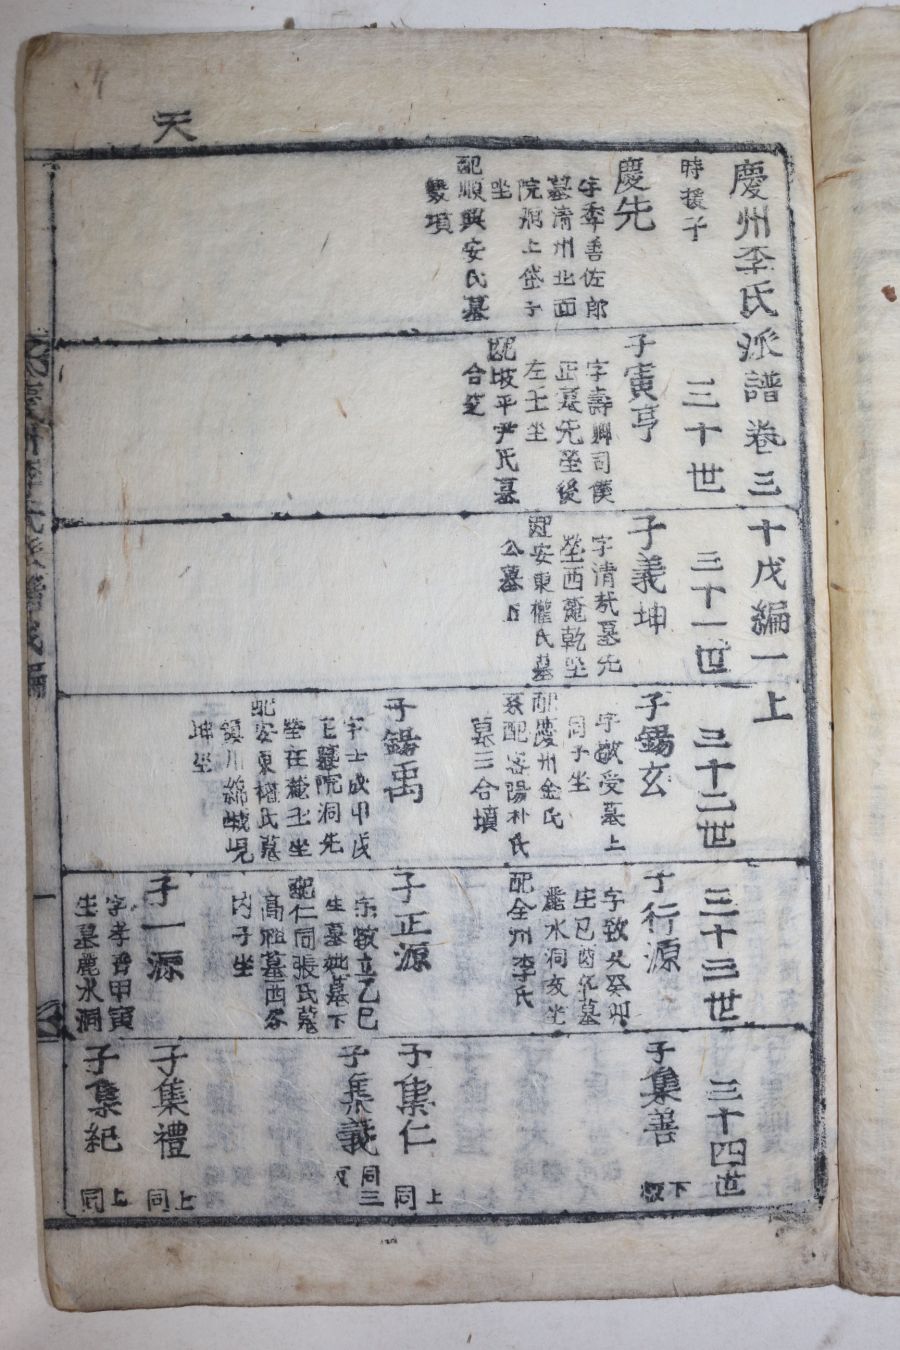 天
慶州李氏派譜卷三十戊編一上
時援子
慶先
字季善佐郎
墓清州北面
院洞上岱子
坐
配順興安氏墓
雙墳
三十世
子寅亨
字壽卿司僕
正墓先塋後
左壬坐
配坡平尹氏墓
合窆
三十一世
子義坤
字清哉墓先
塋西麓乾坐
配安東權氏墓
公墓下
三十二世
子錫玄
字敬受墓上
同子坐
配慶州金氏
系配密陽朴氏
墓三合墳
子錫禹
字士成甲戌
生墓院洞先
塋左麓壬坐
配安東權氏墓
鎮川綿峴
坤坐
三十三世
子行源
字致久癸卯
生己酉卒墓
麗水洞亥坐
配全州李氏
子正源
字敬立乙巳
生墓妣墓下
配仁同張氏墓
高祖墓西
丙子坐
子一源
字孝晋甲寅
生墓麗水洞
三十四世
子集善
下
子集仁
同上
子集義
同三
子集禮
同上
子集紀
同上